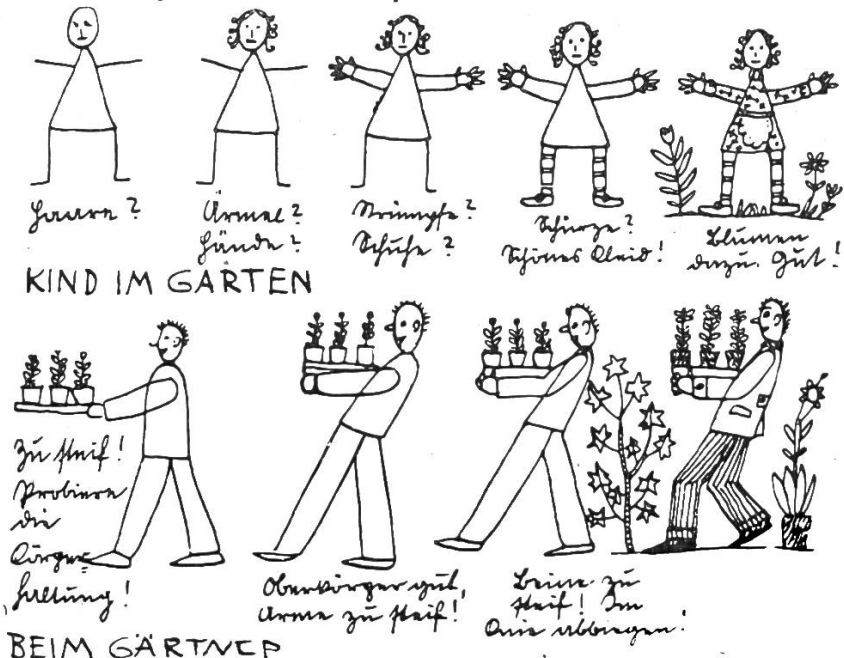 Haare?
Ärmel?
Hände?
Strümpfe?
Schuhe?
Schürze?
Schönes Kleid!
Blumen
dazu. Gut!
KIND IM GARTEN
Zu steif!
Probiere
die
Körper-
haltung!
Oberkörper gut,
Arme zu steif!
Beine zu
steif! Im
Knie abbiegen!
BEIM GÄRTNER